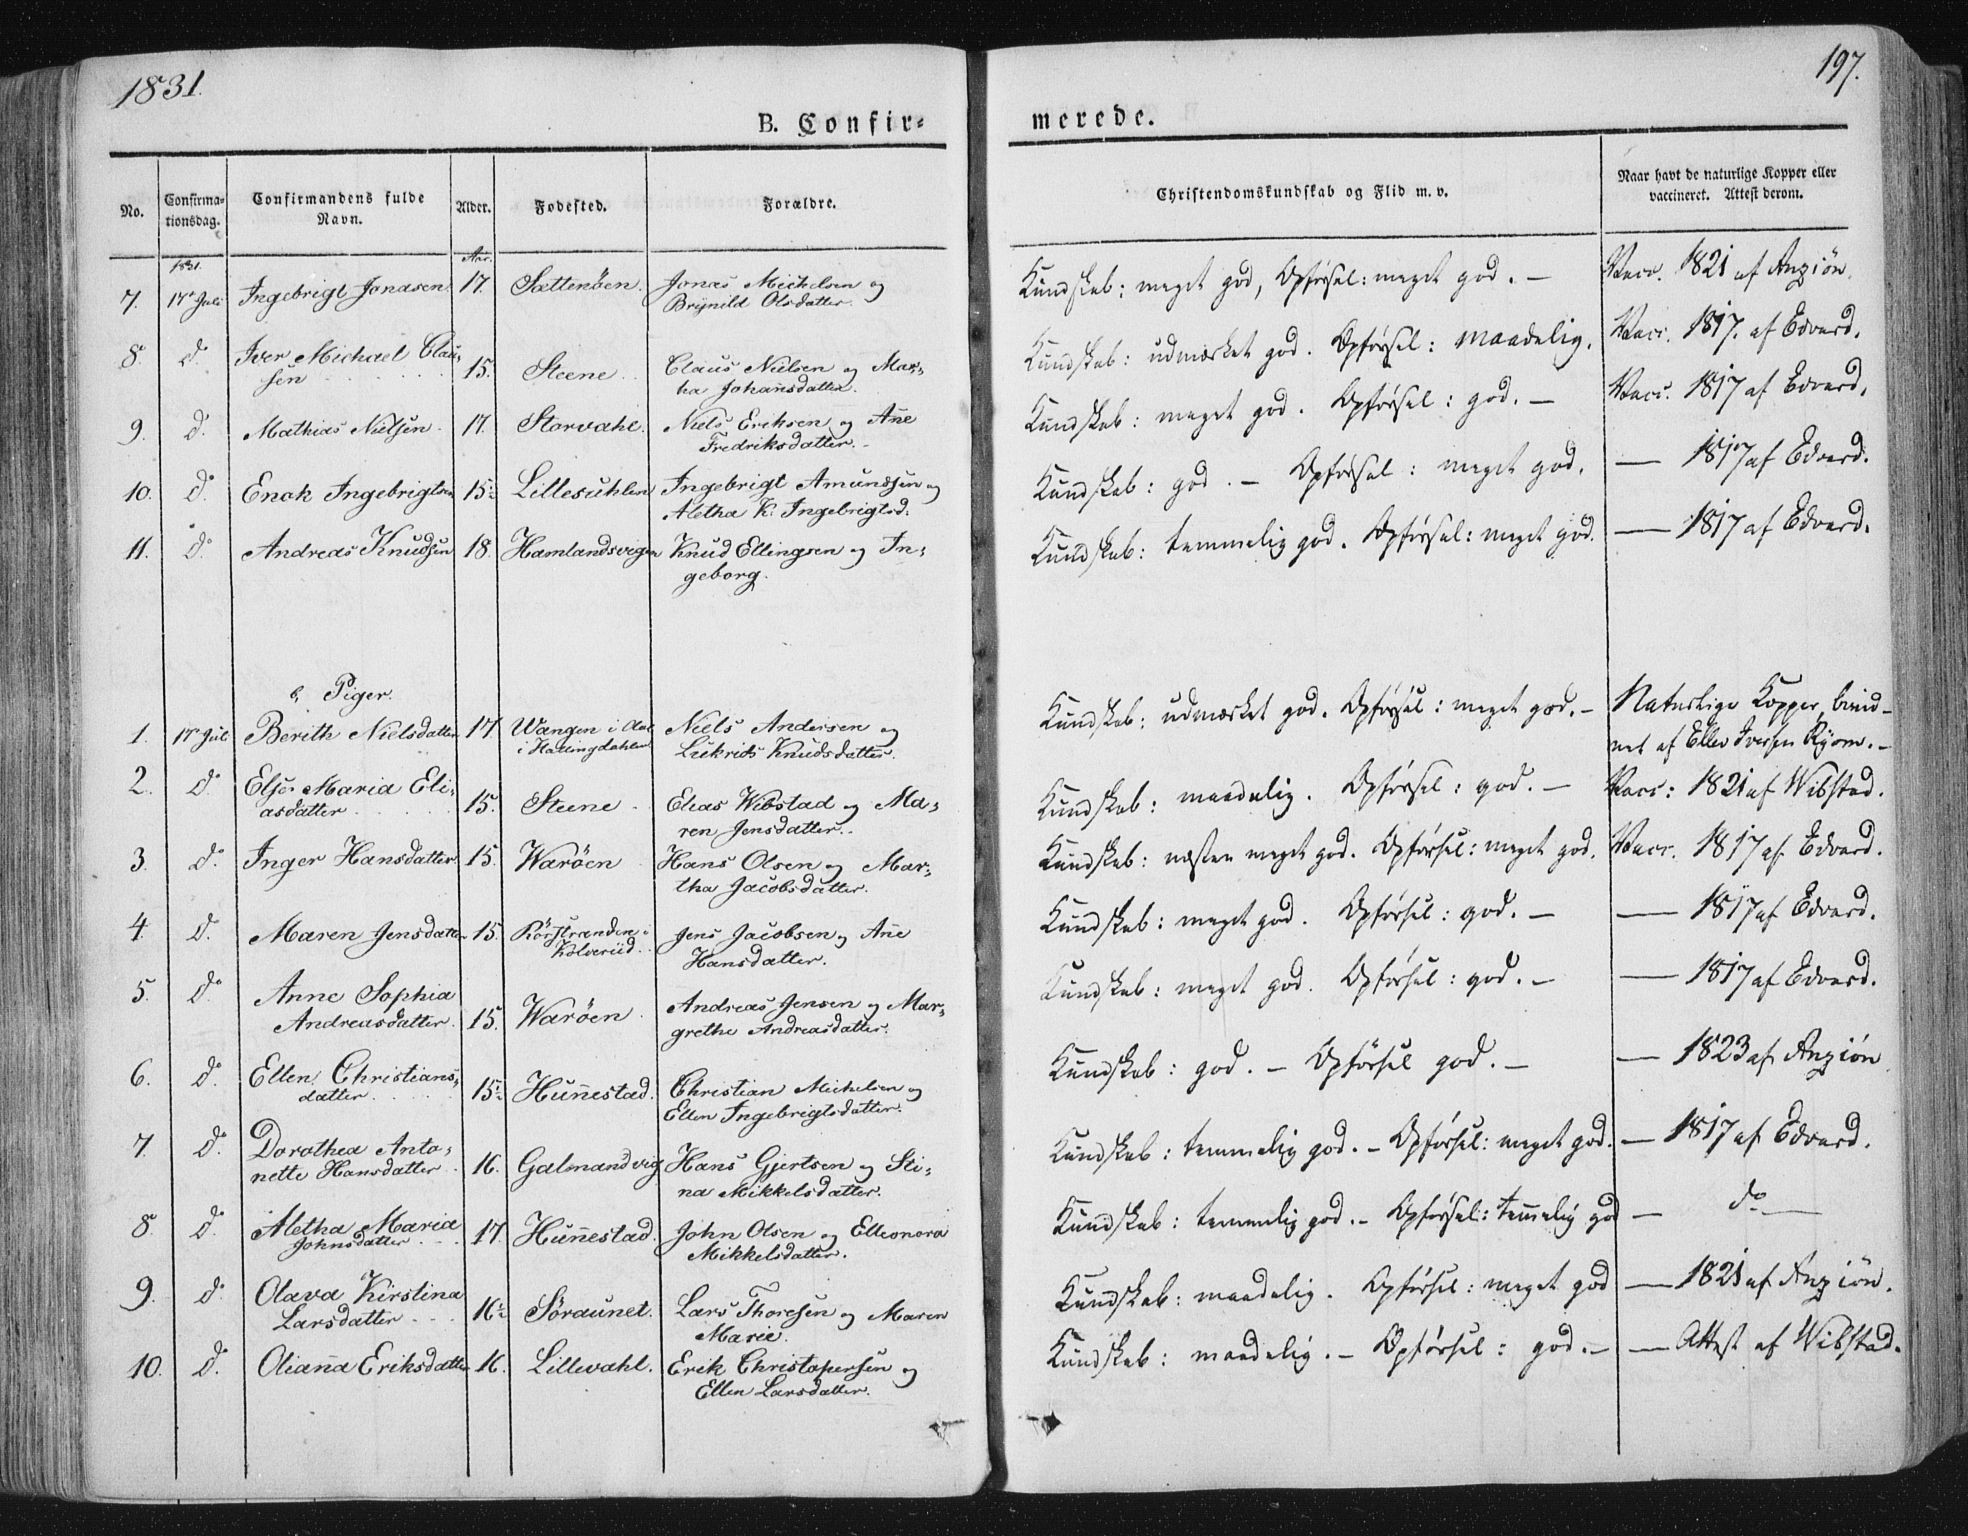 1831.
197.
B. Confir=
merede.
No.
Confirma=
tionsdag.
Confirmandens fulde
Navn.
Alder.
Fødested.
Forældre.
Christendomskundskab og Flid m. v.
Naar havt de naturlige Kopper eller
vaccineret. Attest derom.
1831.
Aar.
7. 17de Juli Ingebrigt Jonasen 17. Sættenöen. Jonas Michelsen og
Brynild Olsdatter.
Kundskab: meget god, Opførsel: meget god. — Vacc. 1821 af Anziön.
8 do Iver Michael Clau=
sen 15. Steene Claus Nielsen og Mar=
ha Johansdatter.
Kundskab: udmærket god. Opførsel: maadelig. Vacc. 1817. af Edvard.
9. do. Mathias Nielsen. 17. Storvahl. Niels Eriksen og Ane
Fredriksdatter.
Kundskab: meget god. Opførsel: god. — Vacc. 1817 af Edvard.
10. do. Enok Ingebrigtsen 15½ Lillesuhlen Ingebrigt Amundsen og
Aletha K. Ingebrigtsd.
Kundskab: god. — Opførsel: meget god. — 1817 af Edvard.
11. do. Andreas Knudsen 18. Hamlandsvigen Knud Ellingsen og In=
geborg.
Kundskab: temmelig god. Opførsel: meget god. — 1817 af Edvard.
b, Piger.
1. 17de Juli Berith Nielsdatter 17. Wangen i Aal
i Hallingdahlen Niels Andersen og
Lukrids Knudsdatter.
Kundskab: udmærket god. Opførsel: meget god. — Naturlige Kopper, bevid-
net af Ellev Iversen Ryom. —
2. do Else Maria Eli=
asdatter 15. Steene Elias Wibstad og Ma=
ren Jensdatter.
Kundskab: maadelig. Opførsel: god. — Vacc: 1821 af Wibstad.
3. do. Inger Hansdatter. 15. Waröen Hans Olsen og Mar=
tha Jacobsdatter.
Kundskab: næsten meget god. Opførsel: meget god. Vacc. 1817 af Edvard.
4. do. Maren Jensdatter 15. Rörstranden i
Kolveriid. Jens Jacobsen og Ane
Hansdatter.
Kundskab: meget god. Opførsel: god. — — 1817 af Edvard.
5. do. Anne Sophia
Andreasdatter. 15. Waröen. Andreas Jensen og Mar=
grethe Andreasdatter.
Kundskab: meget god. Opførsel: god. — — 1817 af Edvard.
6. do. Ellen Christians=
datter 15½ Hunnestad. Christian Michelsen og
Ellen Ingebrigtsdatter.
Kundskab: god. — Opförsel god. — — 1823 af Anziön
7. do. Dorothea Anto=
nette Hansdatter 16. Galmandvig Hans Gjertsen og Sti=
na Mikkelsdatter.
Kundskab: temmelig god. — Opførsel: meget god. — 1817 af Edvard.
8. do. Aletha Maria
Johnsdatter 17. Hunnestad. John Olsen og Elleonora
Mikkelsdatter.
Kundskab: temmelig god. — Opførsel: temelig god — do —
9. do. Olava Kirstina
Larsdatter 16½ Söraunet. Lars Thoresen og Maren
Marie.
Kundskab: maadelig. Opførsel: meget god — 1821 af Anziön.
10. do. Oliana Eriksdatter 16. Lillevahl. Erik Christopersen og
Ellen Larsdatter.
Kundskab: maadelig. — Opførsel: god. — — Attest af Wibstad.